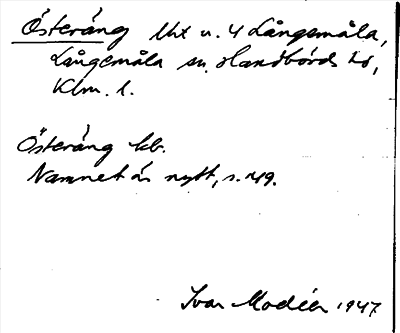 Österäng Uxt u. 4 Långemåla,
Långemåla sn. Handbörds hd,
Klm. l.
Österäng kb.
Namnet är nytt, s. 149.
Ivar Modéer 1947